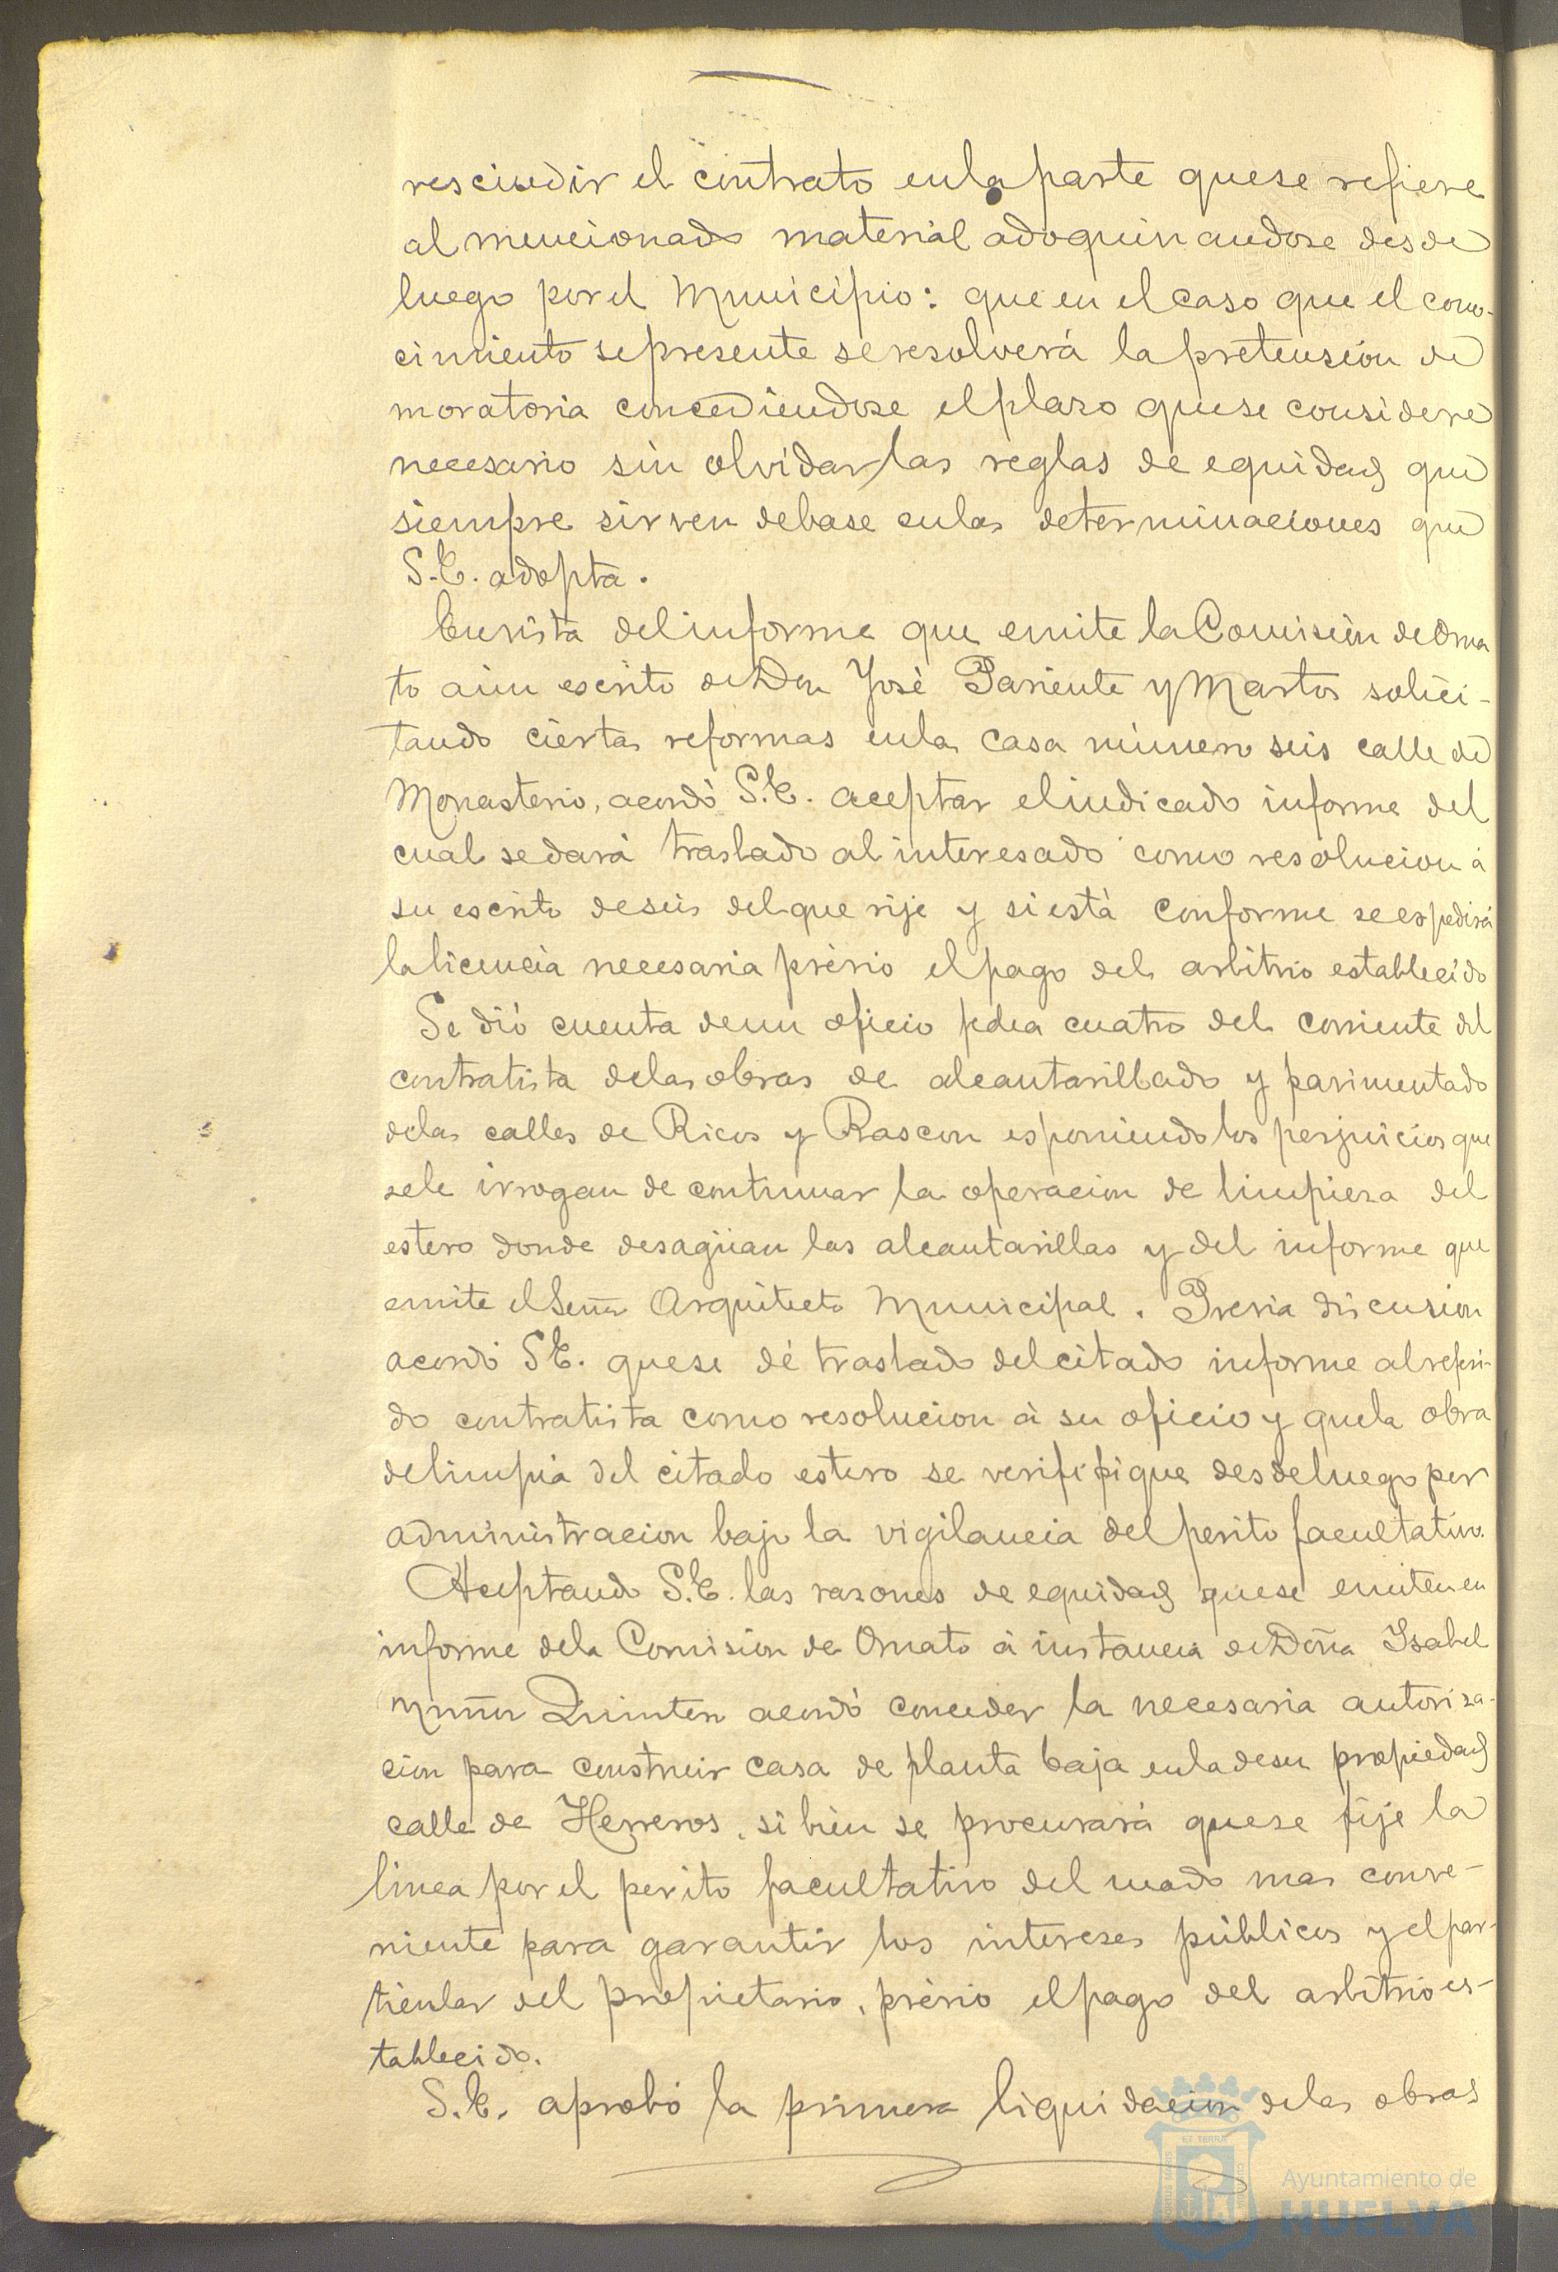 rescindir el contrato en la parte que se refiere
al mencionado material adoquinandose desde
luego por el Municipio: que en el caso que el cono-
cimiento se presente se resolverá la pretension de
moratoria concediendose el plazo que se considere
necesario sin olvidar las reglas de equidad que
siempre sirven de base en las determinaciones que
S.E. adopta.
En vista del informe que emite la Comisión de Orna
to á un escrito de Don José Pariente y Martos solici-
tando ciertas reformas en la casa número seis calle de
Monasterio, acordó S.E. aceptar el indicado informe del
cual se dará traslado al interesado como resolucion á
su escrito de seis del que rije y si está conforme se expedirá
la licencia necesaria prévio el pago del arbitrio establecido
Se dió cuenta de un oficio fecha cuatro del corriente del
contratista de las obras de alcantarillado y pavimentado
de las calles de Ricos y Rascon esponiendo los perjuicios que
se le irrogan de continuar la operacion de limpieza del
estero donde desagüan las alcantarillas y del informe que
emite el Señor Arquitecto Municipal. Previa discusion
acordó S.E. que se dé traslado del citado informe al referi-
do contratista como resolucion á su oficio y que la obra
de limpia del citado estero se verififique desde luego por
administracion bajo la vigilancia del perito facultativo.
Aceptando S.E. las razones de equidad que se emiten en
informe de la Comision de Ornato á instancia de Doña Isabel
Muñoz Quintero acordó conceder la necesaria autoriza-
cion para construir casa de planta baja en la de su propiedad
calle de Herreros, si bien se procurará que se fije la
linea por el perito facultativo del modo mas conve-
niente para garantir los intereses públicos y el par-
ticular del propietario, prévio el pago del arbitrio es-
tablecido.
S.E. aprobó la primera liquidacion de las obras
Ayuntamiento de
HUELVA